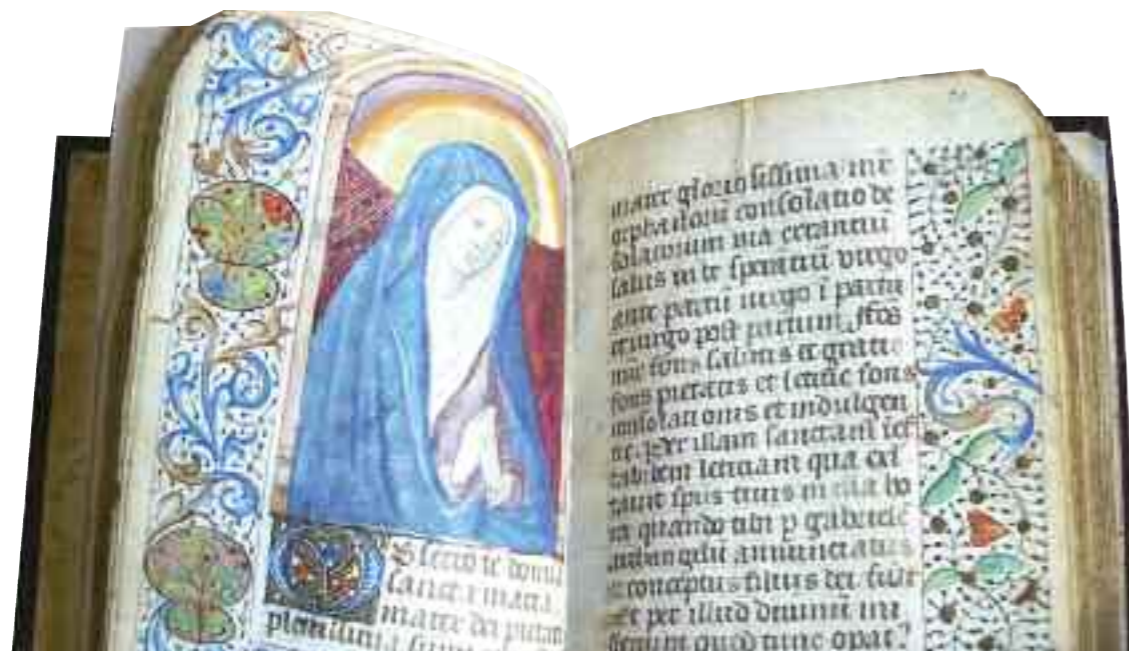 Bsecro te domi
sancta maria
mater dei pietat
mater gloriosissima
orphanorū consolatio de
solatorum via errantiū
salus in te sperantiū virgo
ante partū virgo ī partu
et virgo post partum. fōs
mīe fons salutis et gratie
fons pietatis et leticie fons
consolationis et indulgen
tie. Per illam sanctam
leticiam qua exl
tauit spūs tuus in illa ho
ra quando tibi p gabriele
archangelū annunciatus
et conceptus filius dei fuit
Et per illud diuinū
quod tunc opat